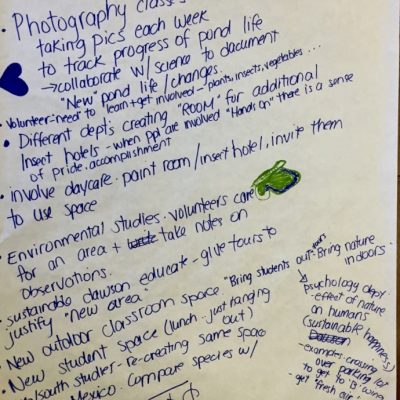 • Photography class
taking pics each week
to track progress of pond life
→ collaborate w/ science to document
"New" pond life / changes.
• Volunteer - need to learn + get involved - plants, insects, vegetables...
• Different dept's creating "ROOM" for additional
Insert hotels - when ppl are involved "Hands on" there is a sense
of pride. accomplishment
• involve daycare. paint room / insert hotel, invite them
to use space
• Environmental studies. volunteers care
for an area + take notes on
observations.
• sustainable dawson educate - give tours to
justify "new area"
• New outdoor classroom space "Bring students out"
• New student space (lunch - just hanging
out)
/south studies - re-creating same space
Mexico. Compare species w/
$
tours
Bring nature
indoors.
psychology dept.
- effect of nature
on humans
(sustainable happiness)
Dawson
- examples crossing
over parking lot
to get to B wing
- get "fresh air"